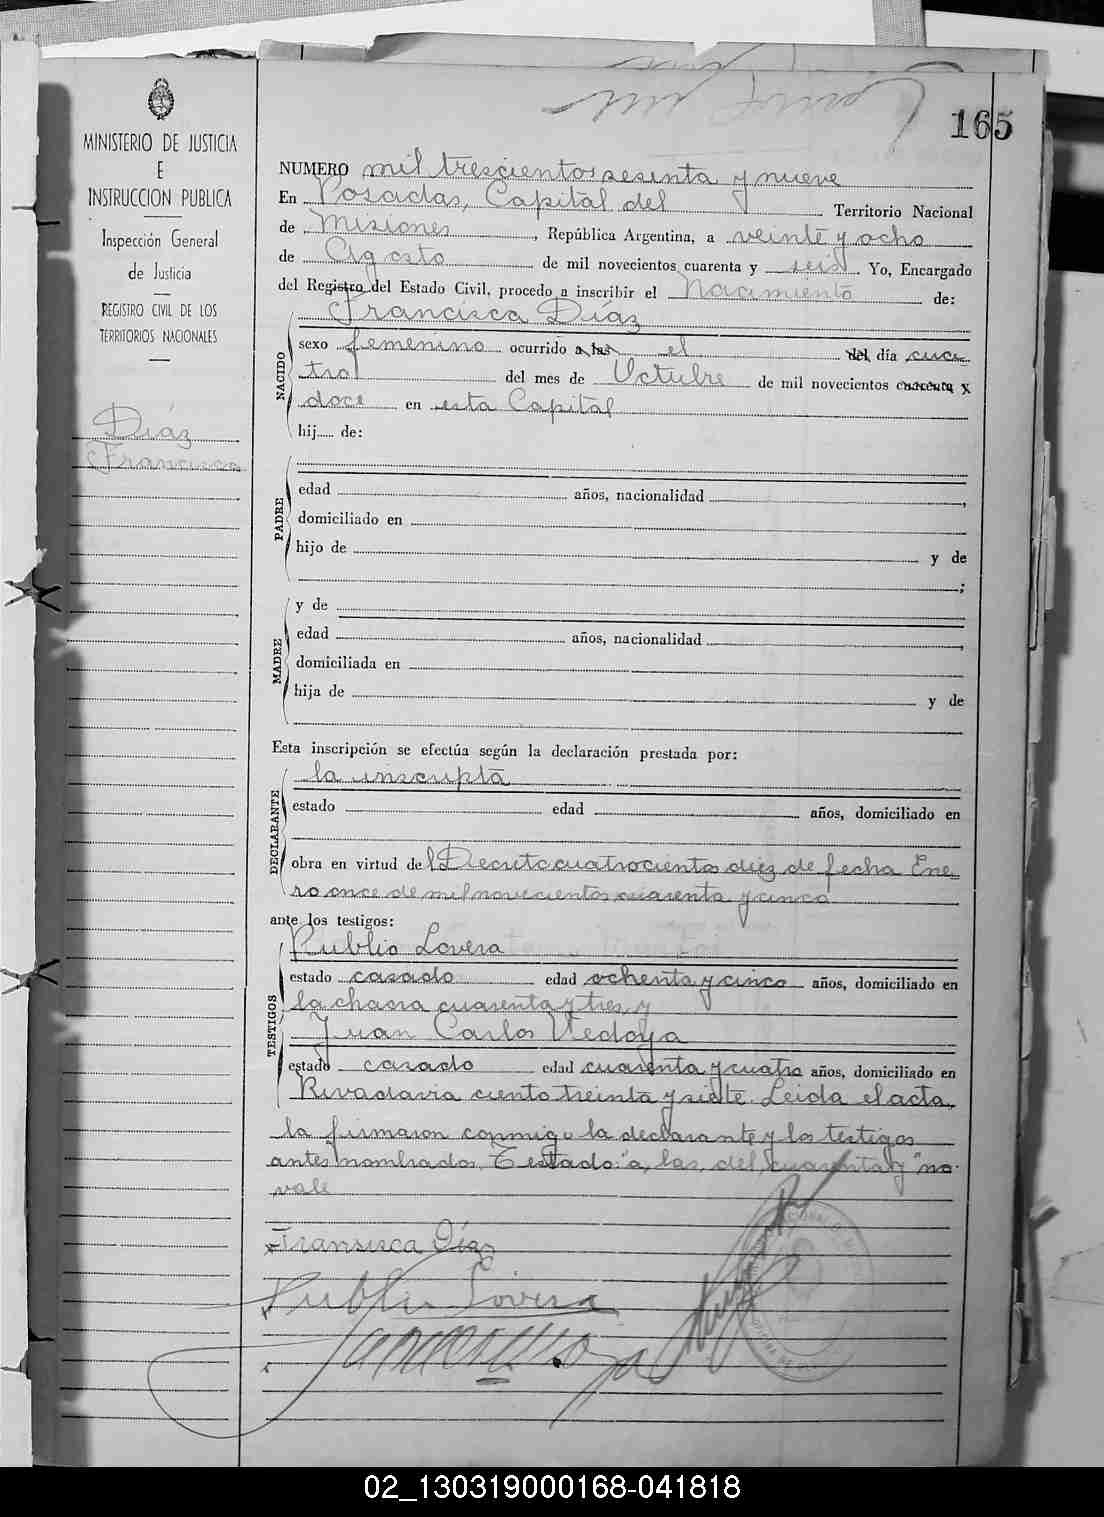 165
MINISTERIO DE JUSTICIA
E
INSTRUCCION PUBLICA
Inspección General
de Justicia
REGISTRO CIVIL DE LOS
TERRITORIOS NACIONALES
Díaz
Francisca
NUMERO mil trescientos sesenta y nueve
En Posadas, Capital del Territorio Nacional
de Misiones, República Argentina, a veinte y ocho
de Agosto de mil novecientos cuarenta y seis Yo, Encargado
del Registro del Estado Civil, procedo a inscribir el Nacimiento de:
Francisca Díaz
NACIDO
sexo femenino ocurrido a las el del día cuca
tro del mes de Octubre de mil novecientos cuarenta y
doce en esta Capital
hij de:
PADRE
edad años, nacionalidad ,
domiciliado en
hijo de y de
;
MADRE
y de
edad años, nacionalidad ,
domiciliada en
hija de y de
Esta inscripción se efectúa según la declaración prestada por:
DECLARANTE
la inscripta
estado edad años, domiciliado en
obra en virtud del Decreto cuatrocientos diez de fecha Ene
ro once de mil novecientos cuarenta y cinco
ante los testigos:
TESTIGOS
Publio Lovera
estado casado edad ochenta y cinco años, domiciliado en
la chacra cuarenta y tres y
Juan Carlos Vedoya
estado casado edad cuarenta y cuatro años, domiciliado en
Rivadavia ciento treinta y siete. Leida el acta,
la firmaron conmigo la declarante y los testigos
antes nombrados. Testado: "a, las, del, cuarenta y" no
vale
Fransisca Díaz
Publio Lovera
02_130319000168-041818